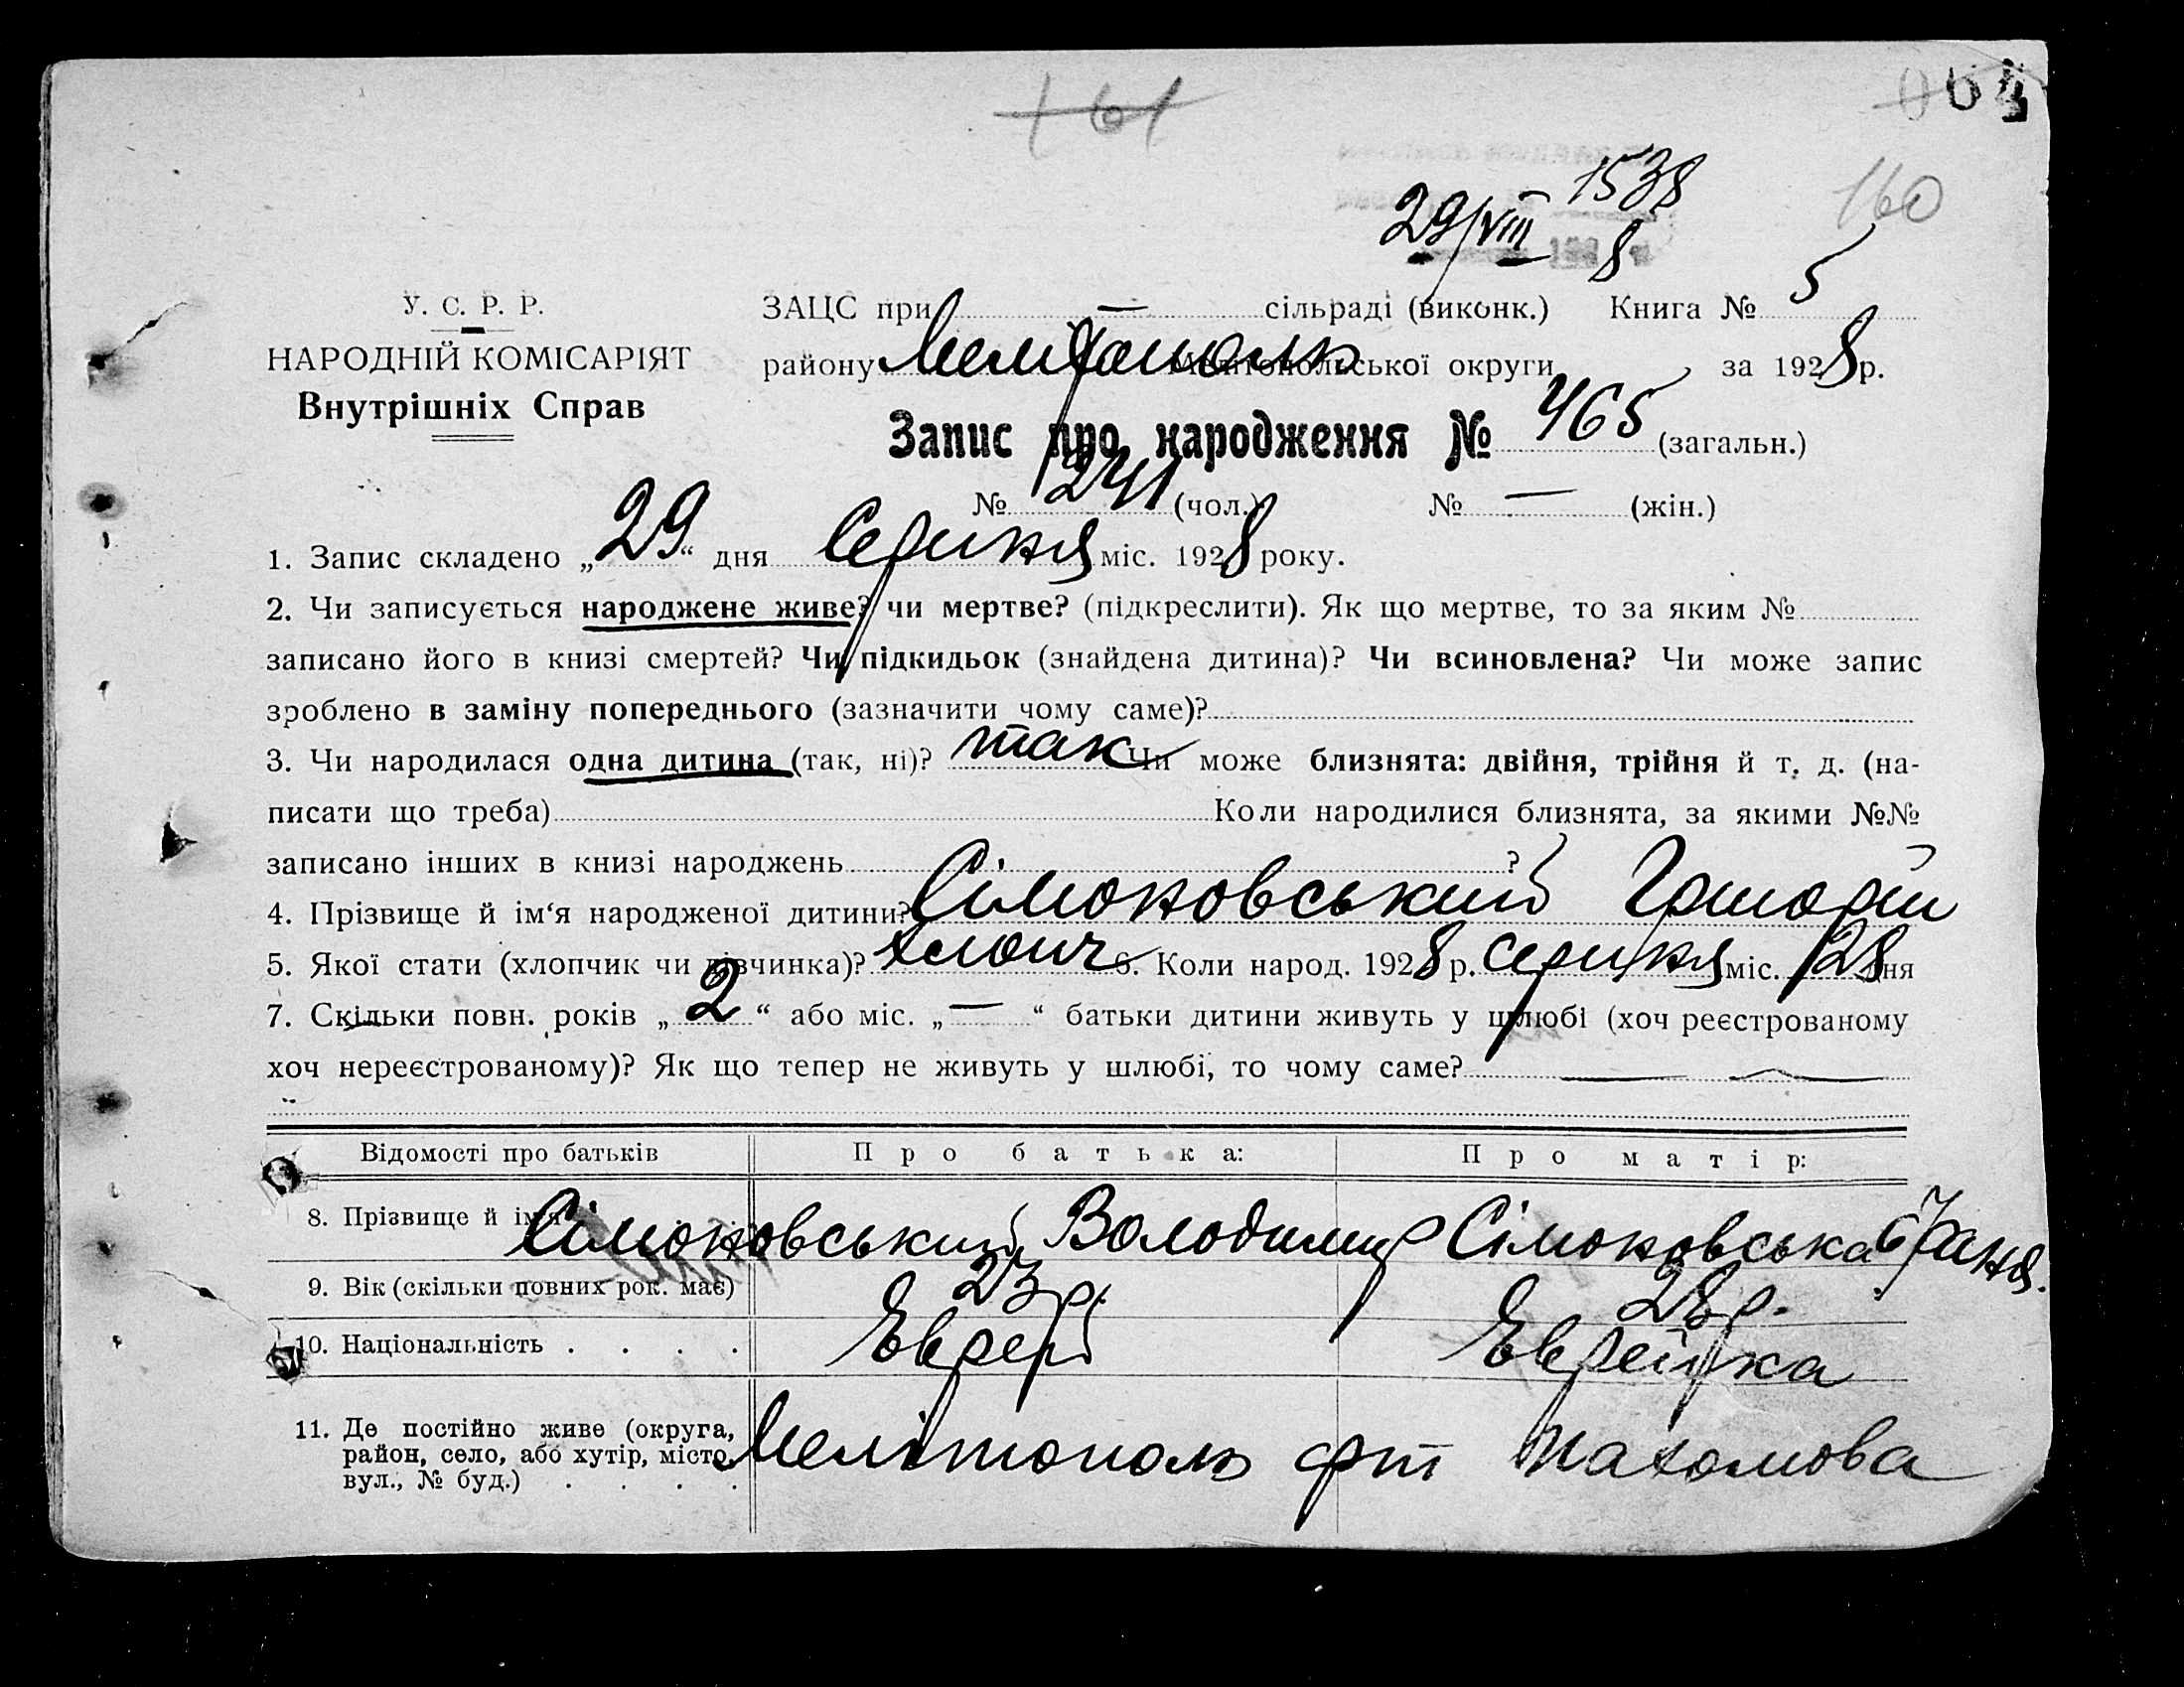 161
064
1538
160
29/VIII 8
У. С. Р. Р.
НАРОДНІЙ КОМІСАРІЯТ
Внутрішніх Справ
ЗАЦС при — сільраді (виконк.) Книга № 5
району Мелітополь Мелітопольської округи за 1928 р.
Запис про народження № 465 (загальн.)
№ 241 (чол.) № — (жін.)
1. Запис складено „29“ дня Серпня міс. 1928 року.
2. Чи записується народжене живе? чи мертве? (підкреслити). Як що мертве, то за яким №
записано його в книзі смертей? Чи підкидьок (знайдена дитина)? Чи всиновлена? Чи може запис
зроблено в заміну попереднього (зазначити чому саме)?
3. Чи народилася одна дитина (так, ні)? так Чи може близнята: двійня, трійня й т. д. (на-
писати що треба) Коли народилися близнята, за якими №№
записано інших в книзі народжень ?
4. Прізвище й ім‘я народженої дитини? Сімоновський
5. Якої стати (хлопчик чи дівчинка)? хлопч 6. Коли народ. 1928 р. серпня міс. 28 дня
7. Скільки повн. років „2“ або міс. „—“ батьки дитини живуть у шлюбі (хоч реєстрованому
хоч нереєстрованому)? Як що тепер не живуть у шлюбі, то чому саме? —
Відомості про батьків Про батька: Про матір:
8. Прізвище й ім‘я Сімоновський Володимир Сімоновська Фаня.
9. Вік (скільки повних рок. має) 23 р. 28 р.
10. Національність . . . . Еврей Еврейка
11. Де постійно живе (округа,
район, село, або хутір, місто,
вул., № буд.) . . . . Мелітополь Пахомова